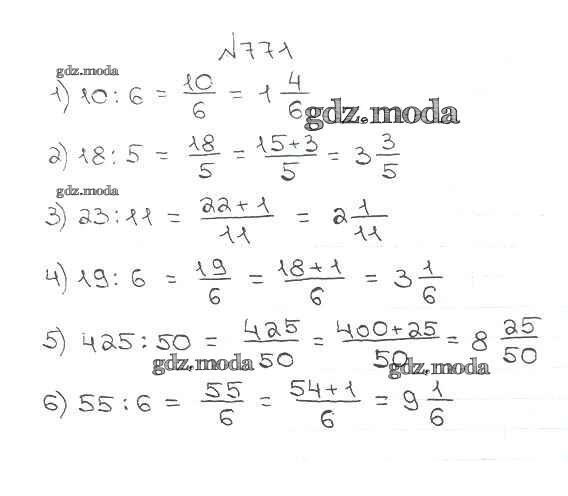 №771
gdz.moda
1) 10 : 6 = 10/6 = 1 4/6
gdz.moda
2) 18 : 5 = 18/5 = 15+3/5 = 3 3/5
gdz.moda
3) 23 : 11 = 22+1/11 = 2 1/11
4) 19 : 6 = 19/6 = 18+1/6 = 3 1/6
5) 425 : 50 = 425/50 = 400+25/50 = 8 25/50
gdz.moda gdz.moda
6) 55 : 6 = 55/6 = 54+1/6 = 9 1/6